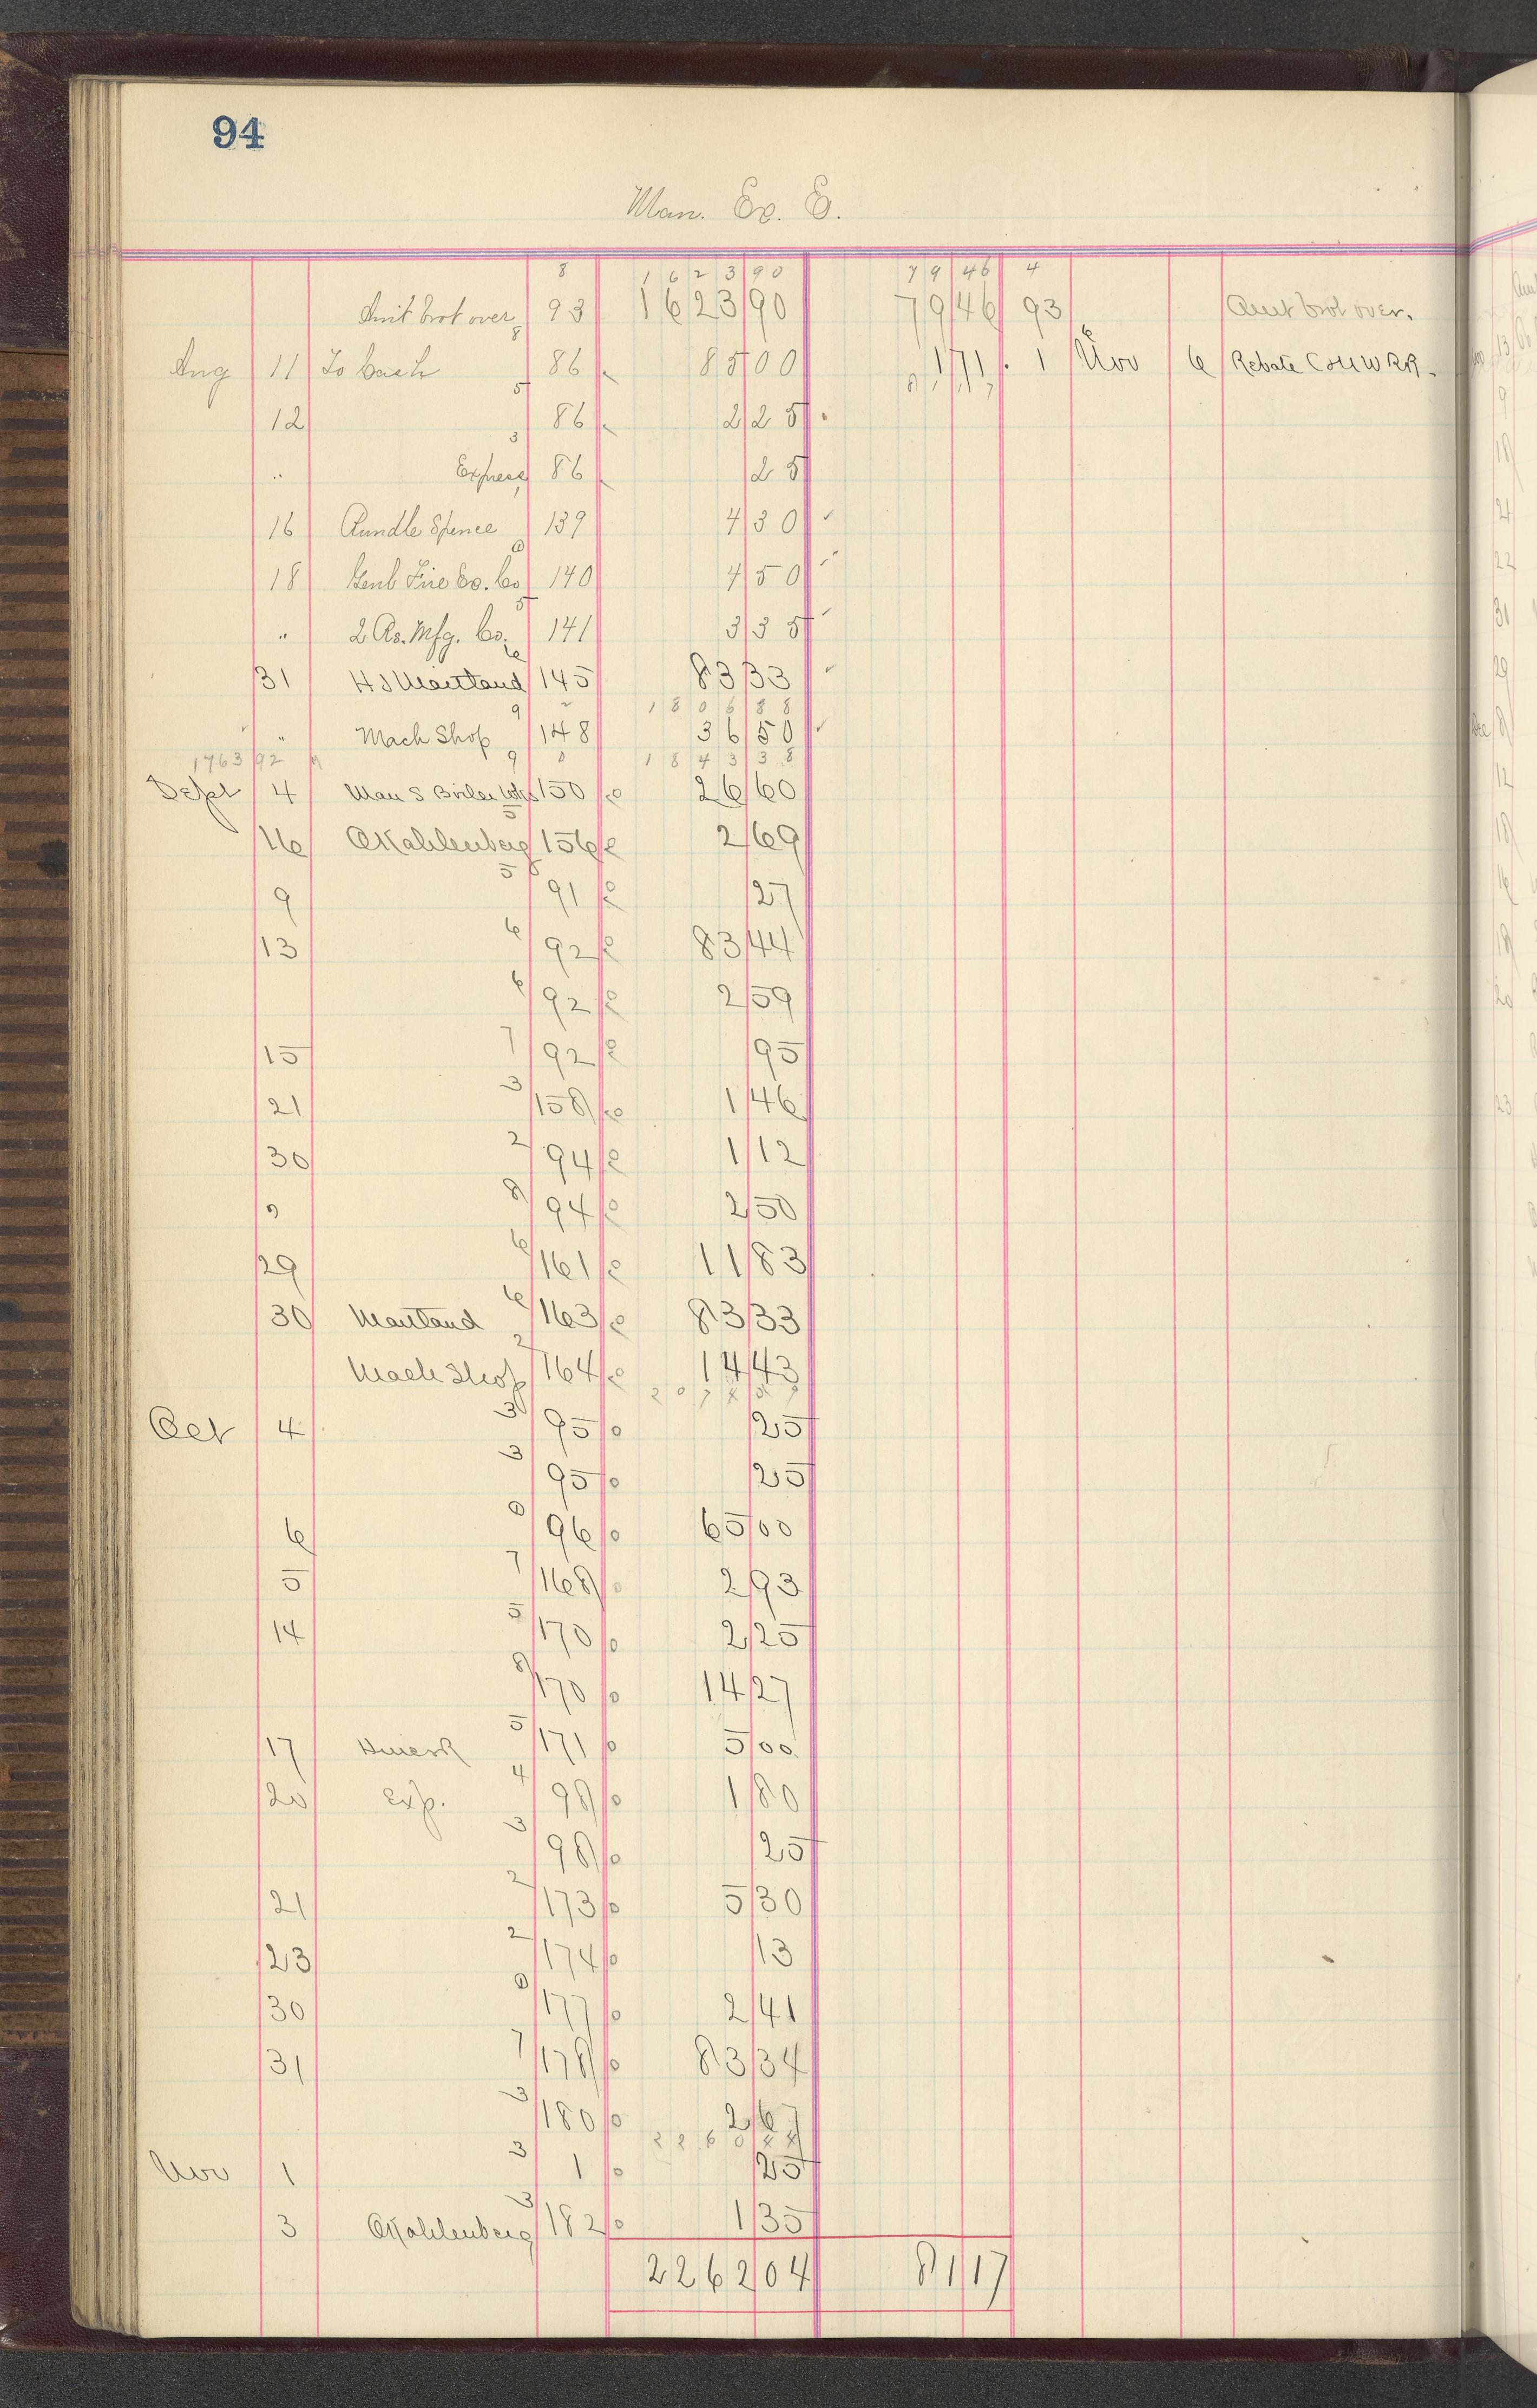 94
Man. Ex. E.
8 1 6 2 3 90 79 46 4
Amt brot over 93 1623 90 79 46 93 Amt brot over.
Aug 11 To Cash 8 86 85 00 1 71 1 Nov 6 6 Rebate C M W RR.
8 1 17
12 5 86 2 25
" Express 3 86 25
16 Rundle Spence 139 4 30
18 Genl Fire Ex. Co 140 4 50
" 2 Rs. Mfg. Co. 5 141 3 35
31 H J Maitland 6 145 83 33
1 8 0 6 8 8
" Mach Shop 9 148 36 50
1763 92 9 1 8 4 3 3 8
Sept 4 Man S Boiler Wks 150 26 60
16 OKahlenberg 5 156 2 69
9 5 91 27
13 6 92 83 44
6 92 2 59
15 7 92 95
21 3 158 1 46
30 2 94 1 12
" 8 94 2 50
29 6 161 11 83
30 Maitland 6 163 83 33
Mach Shop 2 164 14 43
2 0 7 8 5 9
Oct 4 3 95 25
3 95 25
6 0 96 65 00
5 7 168 2 93
14 5 170 2 25
8 170 14 27
17 5 171 5 00
20 Exp. 4 98 1 80
3 98 25
21 2 173 5 30
23 2 174 13
30 0 177 2 41
31 7 178 83 34
3 180 2 67
2 2 6 0 4 4
Nov 1 3 1 25
3 OKahlenberg 3 182 1 35
2262 04 81 17